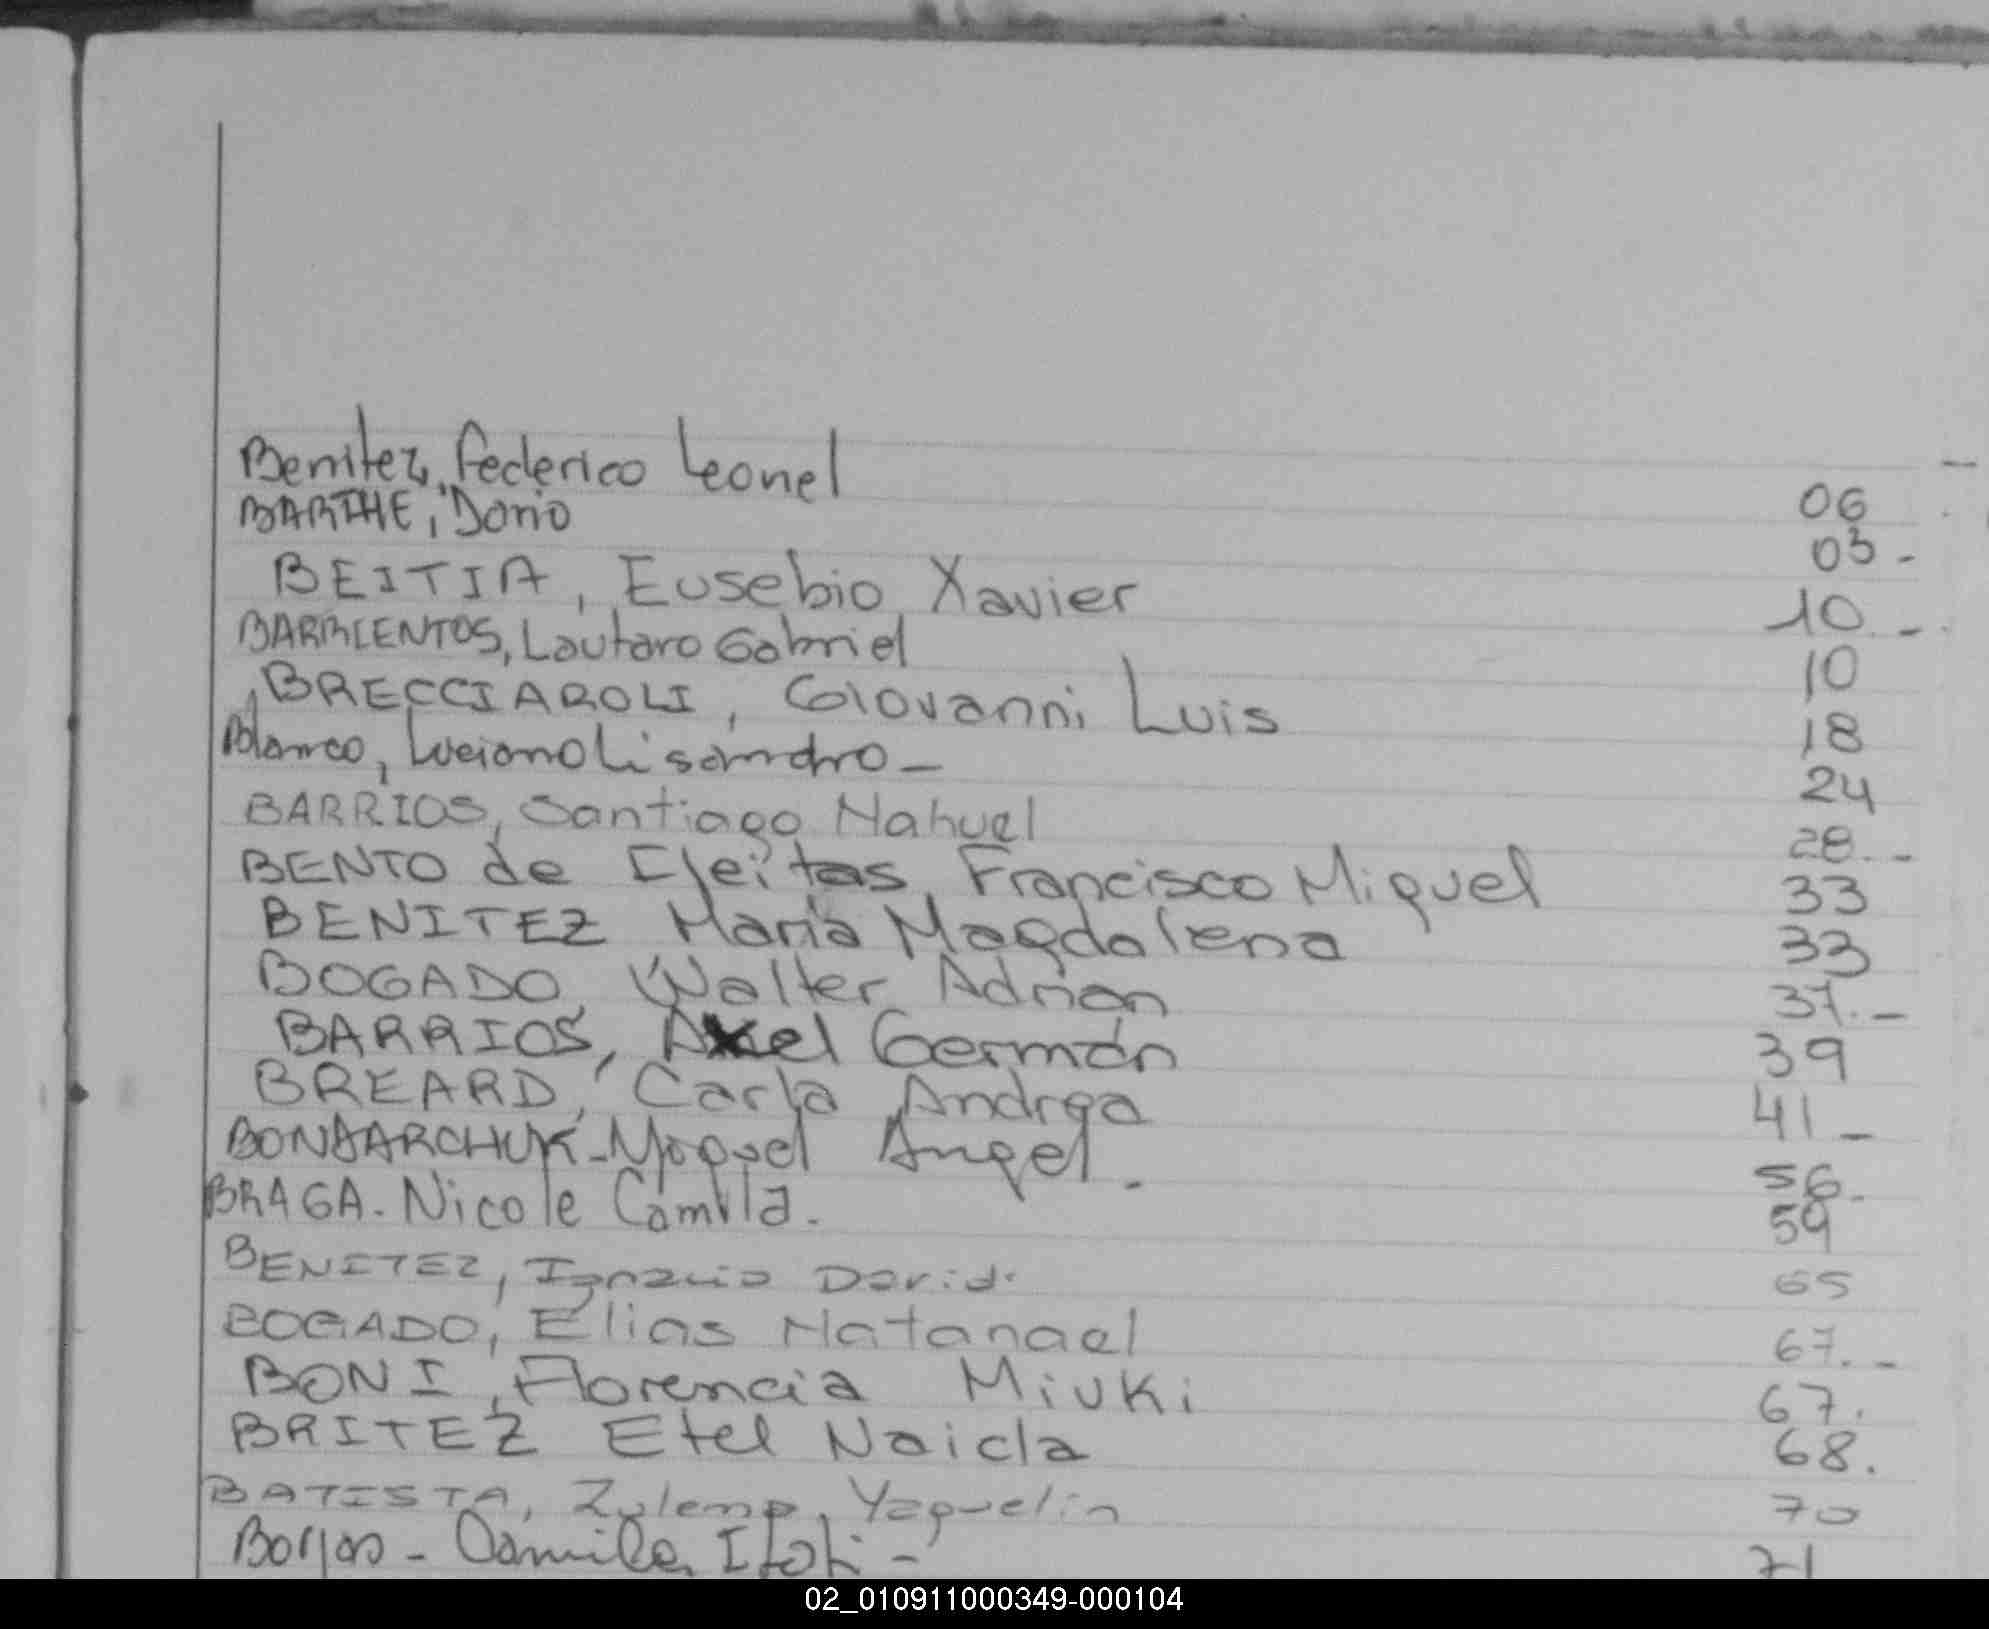 Benitez, Federico Leonel 06
BARTHE, Dario 03-
BEITIA, Eusebio Xavier 10.-
BARRIENTOS, Lautaro Gabriel 10
BRECCIAROLI, Giovanni Luis 18
Blanco, Luciano Lisandro- 24
BARRIOS, Santiago Nahuel 28.-
BENTO de Fleitas, Francisco Miguel 33
BENITEZ Maria Magdalena 33
BOGADO, Walter Adrian 37.-
BARRIOS, Axel Germán 39
BREARD, Carla Andrea 41-
BONDARCHUK-Miguel Angel. 56.
BRAGA. Nicole Camila. 59
BENITEZ, Ignacio David. 65
BOGADO, Elias Natanael 67.-
BONI, Florencia Miuki 67.
BRITEZ Etel Naicla 68.
BATISTA, Zulema Yaquelin 70
- Camila - 71
02_010911000349-000104